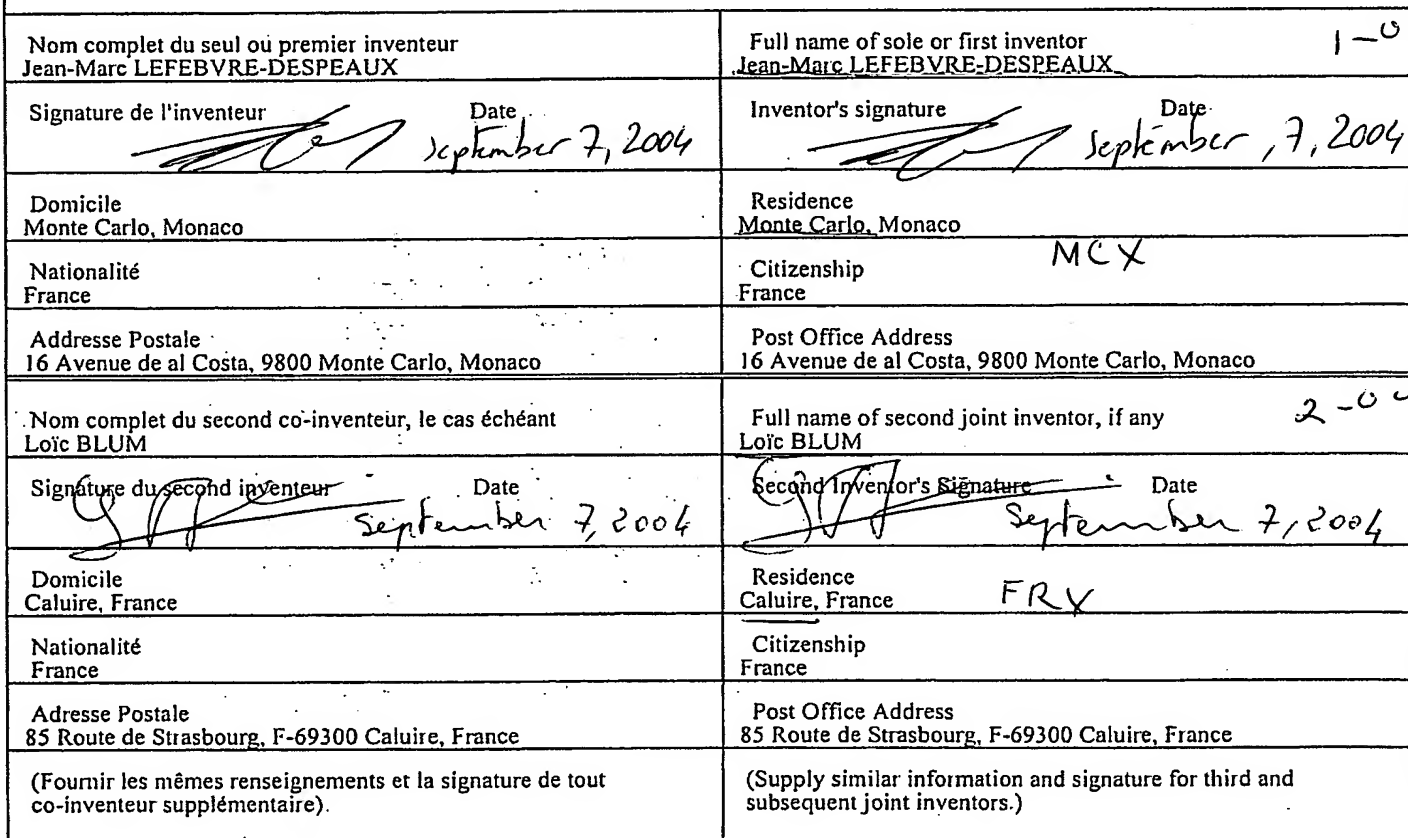 Nom complet du seul ou premier inventeur
Jean-Marc LEFEBVRE-DESPEAUX
Full name of sole or first inventor
Jean-Marc LEFEBVRE-DESPEAUX
Signature de l'inventeur Date
September 7, 2004
Inventor's signature Date
September ,7, 2004
Domicile
Monte Carlo, Monaco
Residence
Monte Carlo, Monaco
MCX
Nationalité
France
Citizenship
France
Addresse Postale
16 Avenue de al Costa, 9800 Monte Carlo, Monaco
Post Office Address
16 Avenue de al Costa, 9800 Monte Carlo, Monaco
Nom complet du second co-inventeur, le cas échéant
Loïc BLUM
Full name of second joint inventor, if any
Loïc BLUM
Signature du second inventeur Date
September 7, 2004
Second Inventor's Signature Date
September 7, 2004
Domicile
Caluire, France
Residence
Caluire, France FRX
Nationalité
France
Citizenship
France
Adresse Postale
85 Route de Strasbourg, F-69300 Caluire, France
Post Office Address
85 Route de Strasbourg, F-69300 Caluire, France
(Fournir les mêmes renseignements et la signature de tout
co-inventeur supplémentaire).
(Supply similar information and signature for third and
subsequent joint inventors.)